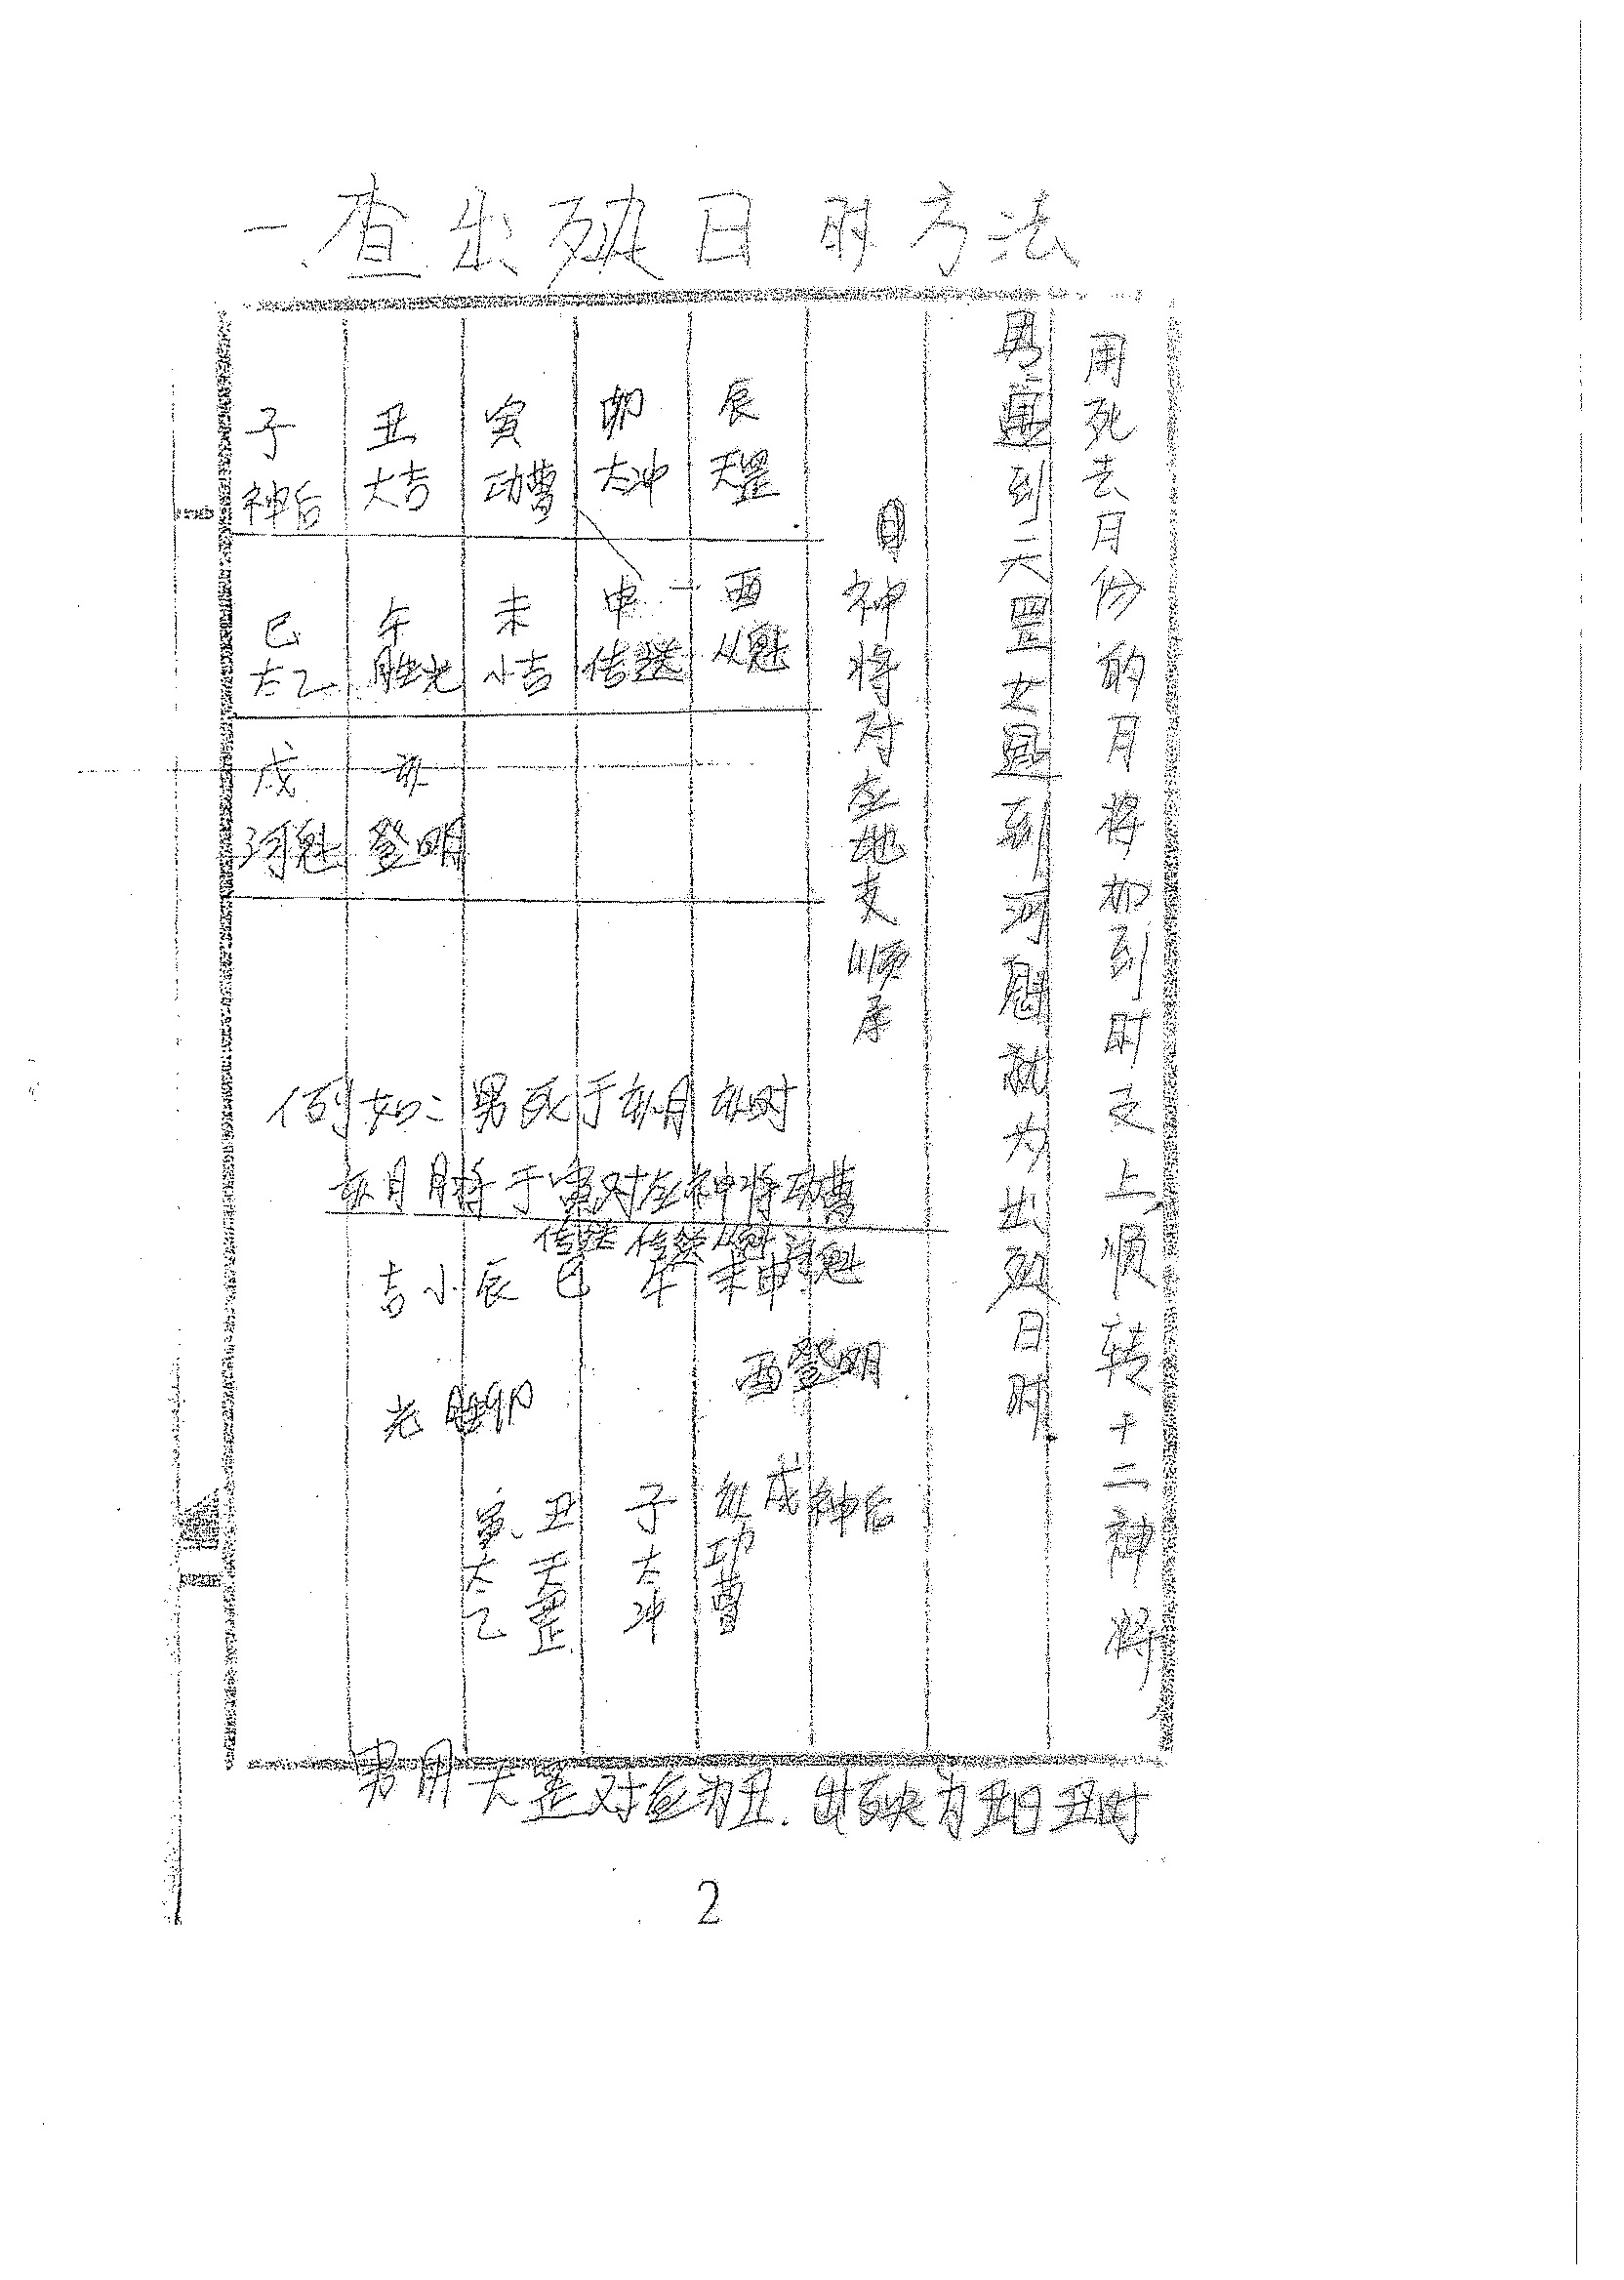 一.查出殃日时方法
用死去月份的月将加到时支上顺转十二神将
男遇到天罡女遇到河魁就为出殃日时
神将对应地支顺序
子 丑 寅 卯 辰
神后 大吉 功曹 太冲 天罡
巳 午 未 申 酉
太乙 胜光 小吉 传送 从魁
戌 亥
河魁 登明
例如:男死于亥月亥时
亥月月将于寅对应神将功曹
传送 传送 从魁 河魁
吉小辰 巳 午 未 申
酉登明
光胜卯
寅 丑 子 亥 戌神后
太乙 天罡 太冲 功曹
男用天罡对应为丑.出殃为丑日丑时
2